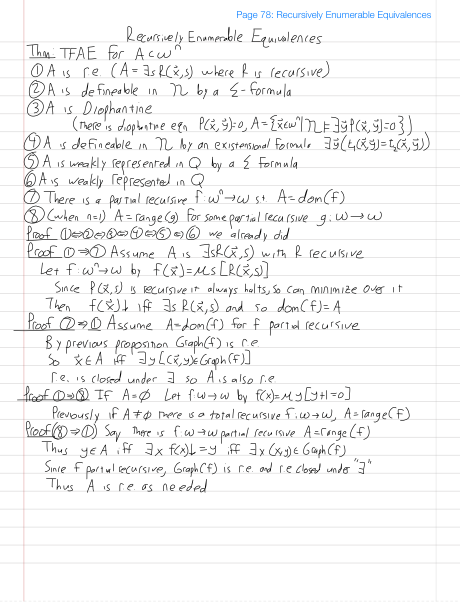 Page 78: Recursively Enumerable Equivalences
Recursively Enumerable Equivalences
Thm: TFAE for A⊂ωⁿ
① A is r.e. (A = ∃s R(x⃗,s) where R is recursive)
② A is defineable in 𝒩 by a Σ-formula
③ A is Diophantine
(there is diophantine eqn P(x⃗,y⃗)=0, A={x⃗∈ωⁿ | 𝒩 ⊨ ∃y⃗ P(x⃗,y⃗)=0})
④ A is defineable in 𝒩 by an existensional formula ∃y⃗ (t₁(x⃗,y⃗)=t₂(x⃗,y⃗))
⑤ A is weakly represented in Q by a Σ formula
⑥ A is weakly represented in Q
⑦ There is a partial recursive f:ωⁿ→ω st A=dom(f)
⑧ (when n=1) A=range(g) for some partial recursive g:ω→ω
Proof ①⇔②⇔③⇔④⇔⑤⇔⑥ we already did
Proof ①⇒⑦ Assume A is ∃sR(x⃗,s) with R recursive
Let f:ωⁿ→ω by f(x⃗)=μs[R(x⃗,s)]
Since R(x⃗,s) is recursive it always halts, so can minimize over it
Then f(x⃗)↓ iff ∃s R(x⃗,s) and so dom(f)=A
Proof ⑦⇒① Assume A=dom(f) for f partial recursive
By previous proposition Graph(f) is r.e
So x⃗∈A iff ∃y[(x⃗,y)∈Graph(f)]
r.e. is closed under ∃ so A is also r.e
Proof ①⇒⑧ If A=∅ Let f:ω→ω by f(x)=μy[y+1=0]
Previously if A≠∅ there is a total recursive f:ω→ω, A=range(f)
Proof ⑧⇒① Say there is f:ω→ω partial recursive A=range(f)
Thus y∈A iff ∃x f(x)↓=y iff ∃x (x,y)∈Graph(f)
Since f partial recursive, Graph(f) is r.e. and r.e closed under "∃"
Thus A is r.e. as needed